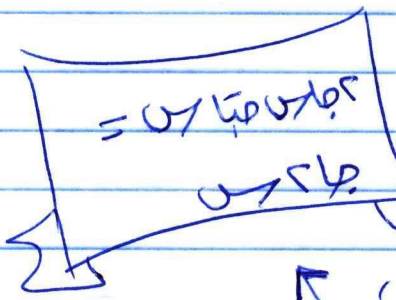 ٢جاس جتاس =
جا٢س